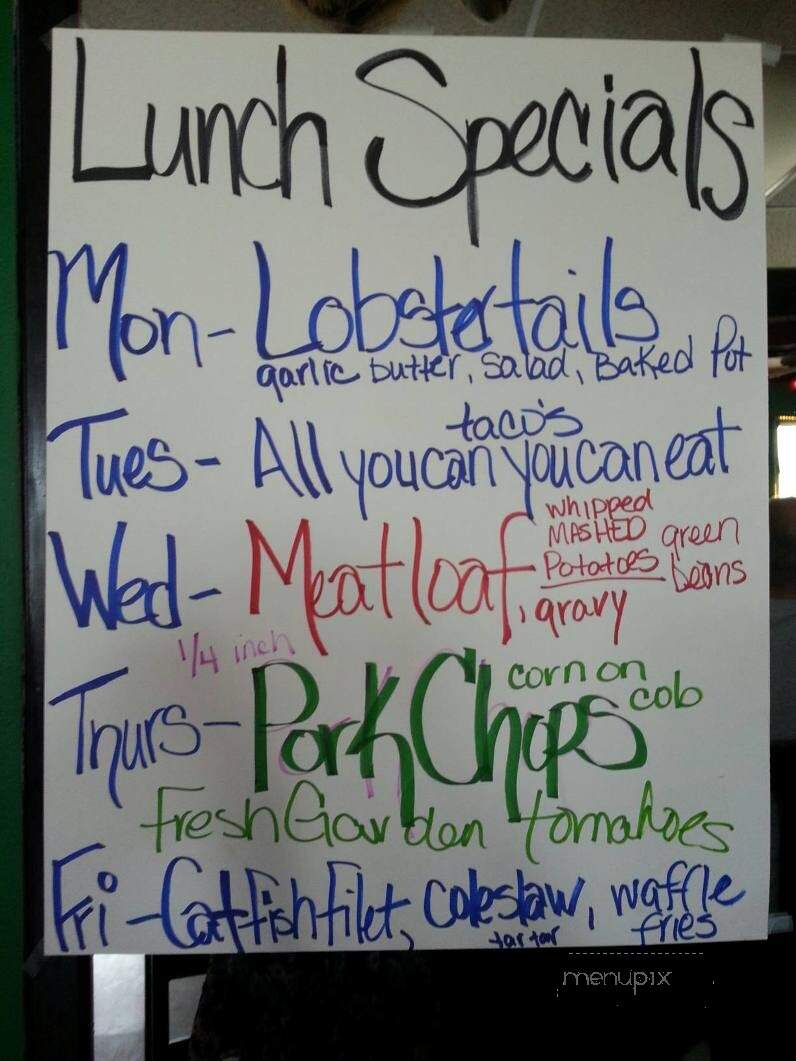 Lunch Specials
Mon- Lobster tails
garlic butter, salad, Baked Pot
taco's
Tues- All you can you can eat
Wed- Meatloaf,
whipped
MASHED
Potatoes
green
beans
gravy
1/4 inch
Thurs- Pork Chops
corn on
cob
Fresh Garden tomahoes
Fri- Catfish Filet, coleslaw, waffle
tartar
fries
menupix